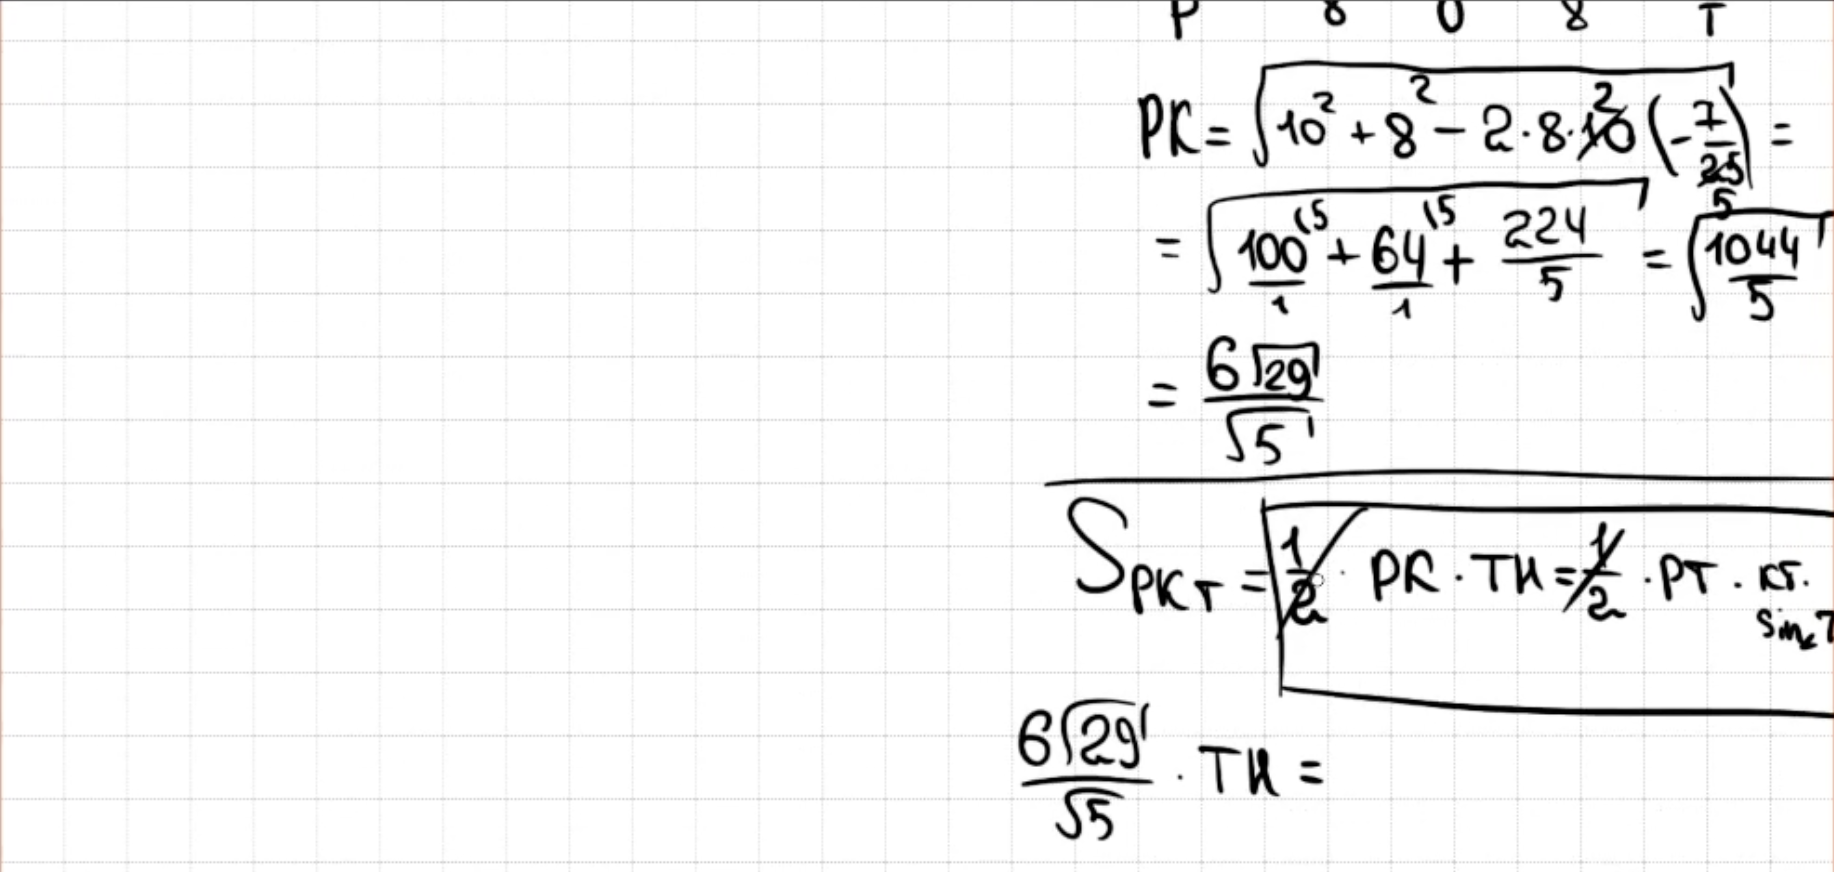 P 8 O 8 T
PK = √(10² + 8² − 2·8·10 (−7/25)) =
2
5
= √(100/1 (5 + 64/1 (5 + 224/5) = √(1044/5)
= 6√29/√5
S PKT = 1/2 · PK · TH = 1/2 · PT · KT ·
sin∠T
6√29/√5 · TH =